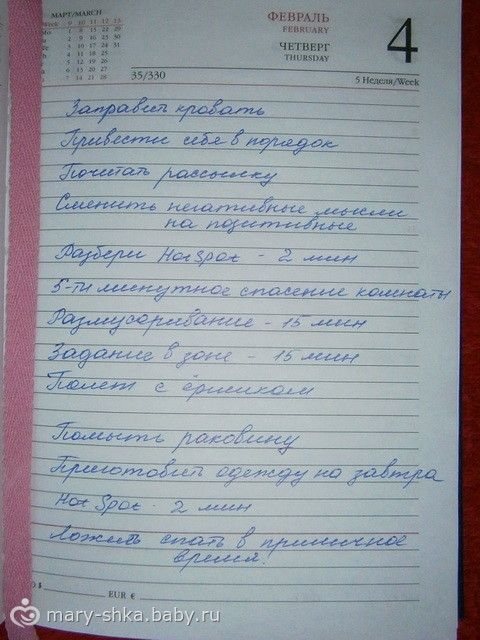 МАРТ/MARCH
Week 9 10 11 12 13
1 8 15 22 29
2 9 16 23 30
3 10 17 24 31
4 11 18 25
5 12 19 26
6 13 20 27
7 14 21 28
ФЕВРАЛЬ
FEBRUARY
ЧЕТВЕРГ
THURSDAY
4
35/330
5 Неделя/Week
Заправить кровать
Привести себя в порядок
Почитать рассылку
Сменить негативные мысли
на позитивные
Разбери Hot Spot - 2 мин
5-ти минутное спасение комнаты
Размусоривание - 15 мин
Задание в зоне - 15 мин
Полет с ёршиком
Помыть раковину
Приготовить одежду на завтра
Hot Spot - 2 мин
Ложись спать в приличное
время!
EUR €
mary-shka.baby.ru